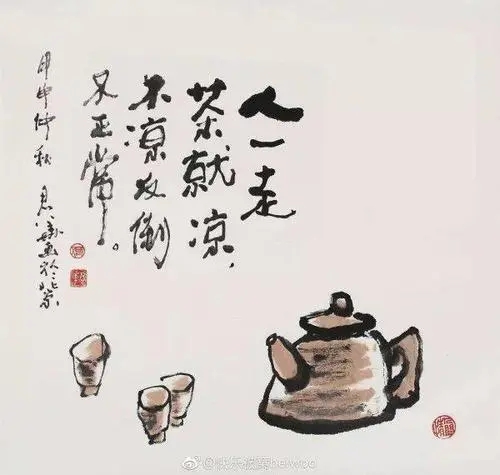 人一走
茶就凉,
不凉反倒
不正常。
甲申仲秋
画於北京